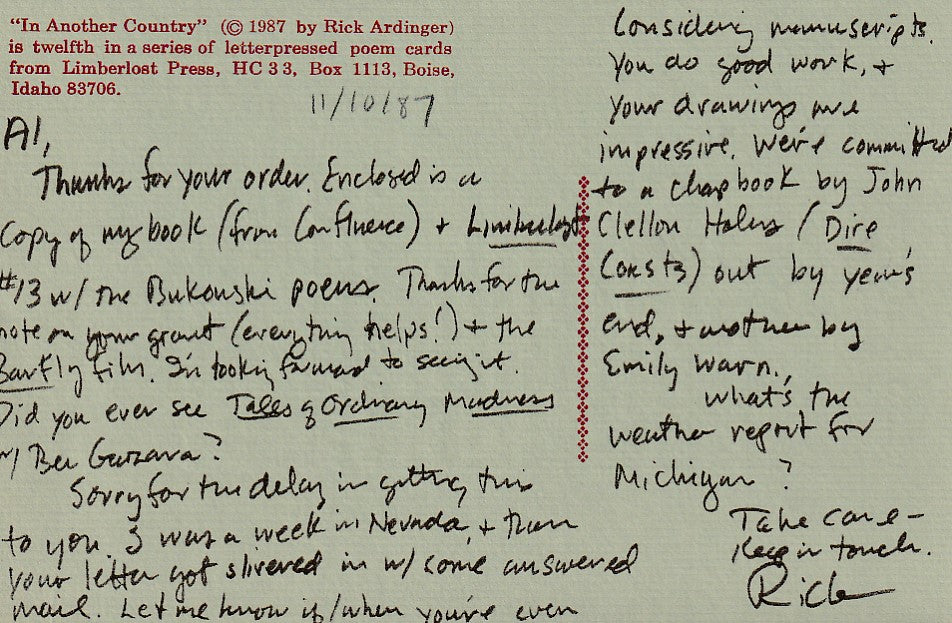 "In Another Country" (© 1987 by Rick Ardinger)
is twelfth in a series of letterpressed poem cards
from Limberlost Press, HC 33, Box 1113, Boise,
Idaho 83706.
11/10/87
Al,
Thanks for your order. Enclosed is a
copy of my book (from Confluence) + Limberlost
#13 w/ the Bukowski poems. Thanks for the
note on your grant (everything helps!) + the
Barfly film. I'm looking forward to seeing it.
Did you ever see Tales of Ordinary Madness
w/ Ben Gazzara?
Sorry for the delay in getting this
to you. I was a week in Nevada, + then
your letter got slivered in w/ some answered
mail. Let me know if/when you're even
considering manuscripts.
You do good work, +
your drawings are
impressive. We're committed
to a chapbook by John
Clellon Holmes (Dire
Coasts) out by year's
end, + another by
Emily Warn.
What's the
weather report for
Michigan?
Take care –
Keep in touch.
Rick